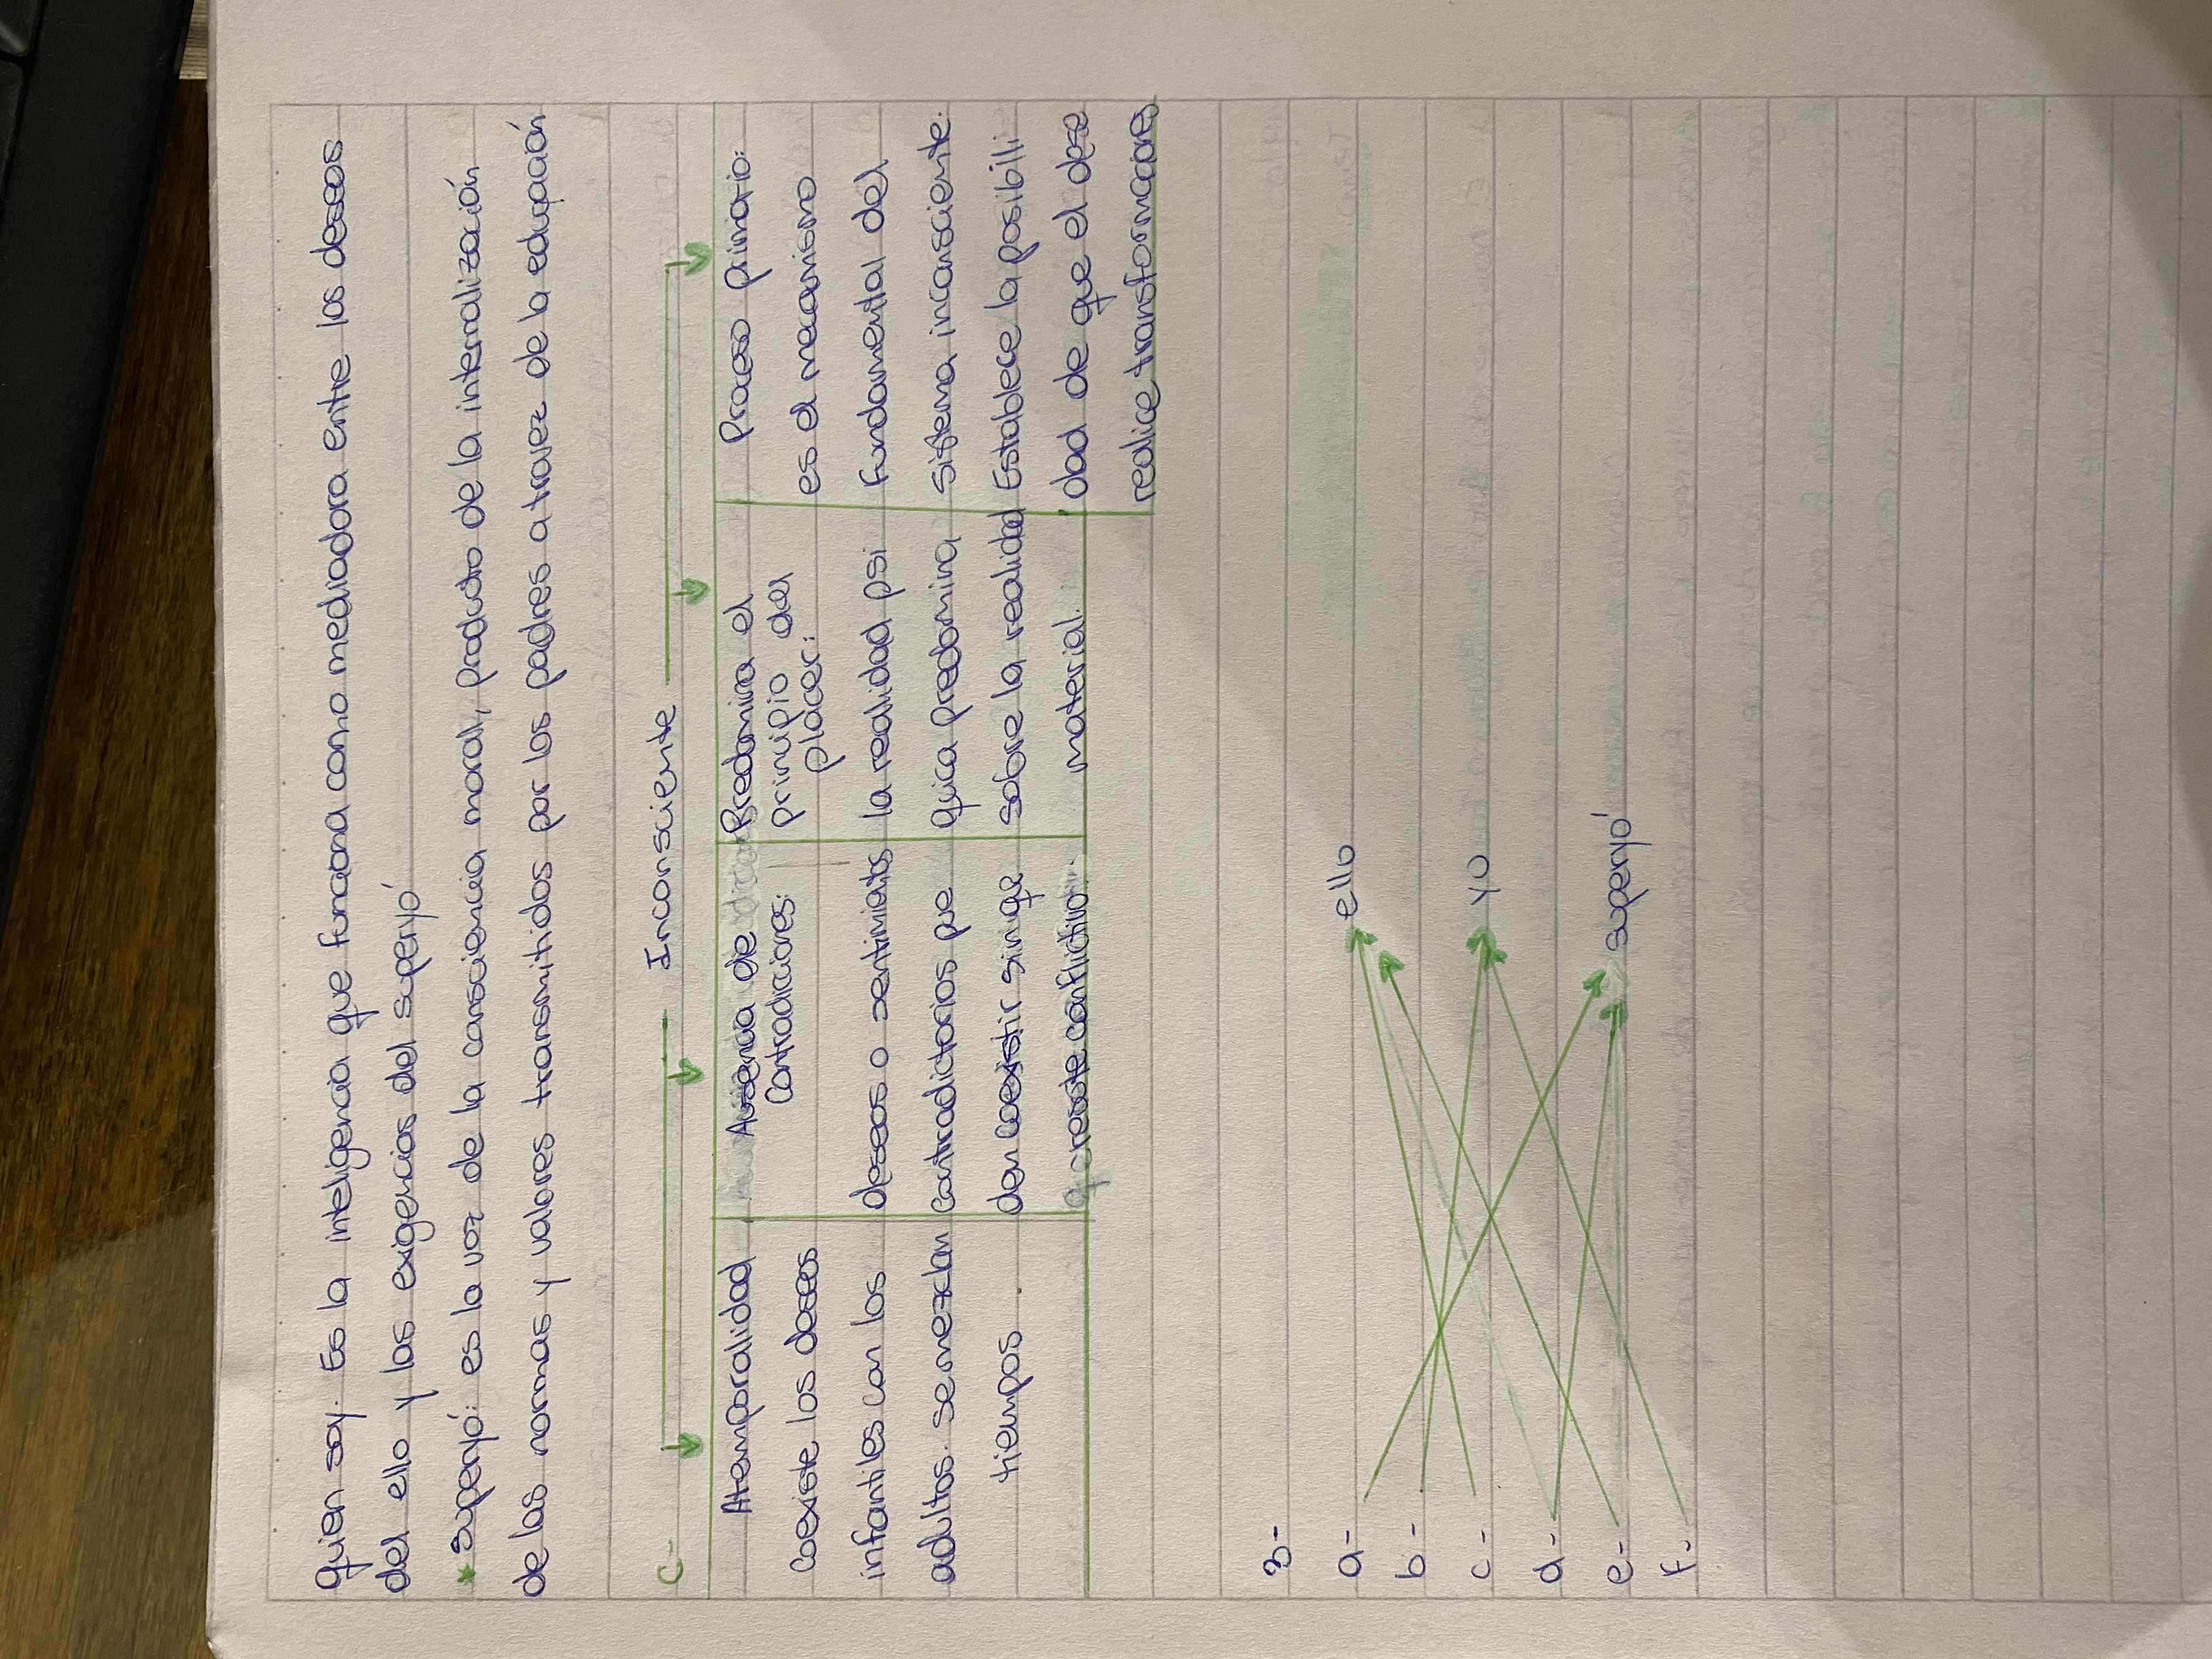 quien soy. Es la inteligencia que funciona como mediadora entre los deseos
del ello y las exigencias del superyó
* superyó: es la voz de la consciencia moral, producto de la internalización
de las normas y valores transmitidos por los padres a travez de la educación
C-
Inconsciente
Atemporalidad
coexiste los deseos
infantiles con los
adultos. se mezclan
tiempos.
Ausencia de
Contradiciones:
deseos o sentimientos
contradictorios pue
den coexistir sin que
create conflictivo.
Predomina el
principio del
placer:
la realidad psi
quica predomina
sobre la realidad
material.
Proceso primario:
es el mecanismo
fundamental del
sistema inconsciente.
Establece la posibili
dad de que el dese
realice transformaciones
3-
a-
b-
c-
d-
e-
f-
ello
yo
superyó